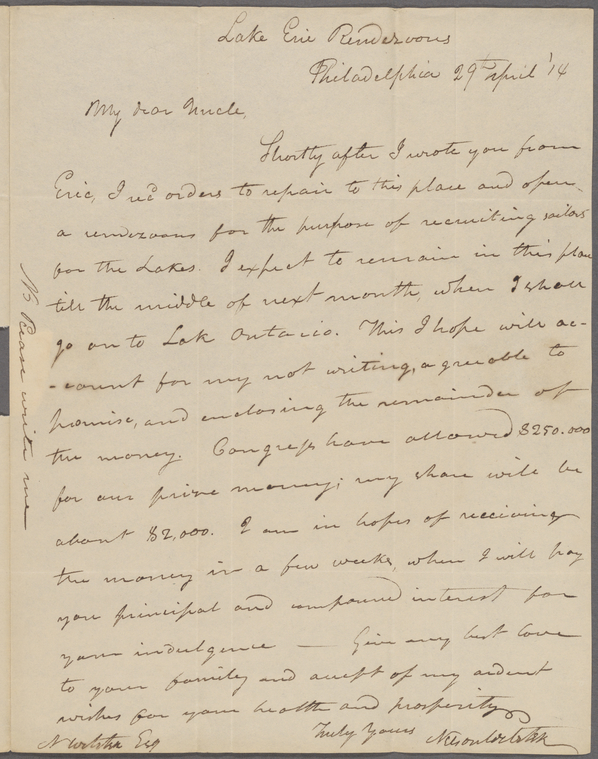 Lake Erie Rendezvous
Philadelphia 29th april '14
My dear Uncle,
Shortly after I wrote you from
Erie, I recd orders to repair to this place and open
a rendezvous for the purpose of recruiting sailors
for the Lakes. I expect to remain in this place
till the middle of next month, when I shall
go on to Lak Ontario. This I hope will ac-
-count for my not writing, agreeable to
promise, and enclosing the remainder of
the money. Congress have allowed $250.000
for our prize money; my share will be
about $2,000. I am in hopes of receiving
the money in a few weeks, when I will pay
you principal and compound interest for
your indulgence — Give my best love
to your family and accept of my ardent
wishes for your health and prosperity
Truly Yours
Nelson Webster
N Webster Esq
NB Please write me